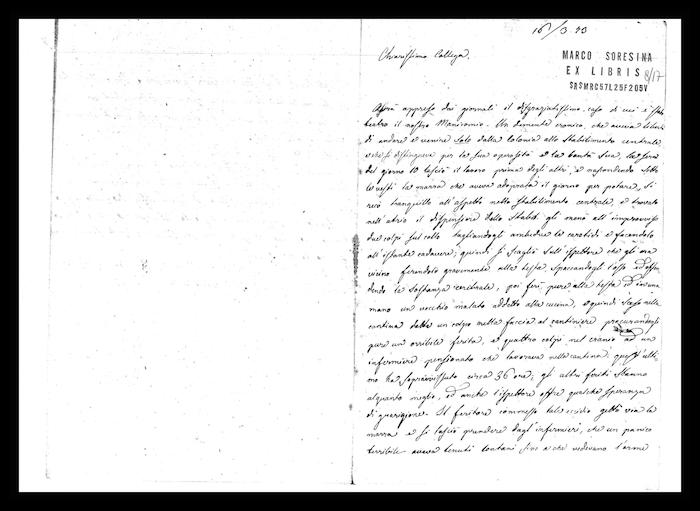 16/3.93
Chiarissimo Collega,
MARCO SORESINA
EX LIBRIS 8/17
SRSMRC57L25F205V
Avrà appreso dai giornali il disgraziatissimo caso di cui è stato
teatro il nostro Manicomio. Un demente cronico, che aveva libertà
di andare e venire solo dalla colonia allo Stabilimento centrale,
e che si distingueva per la sua operosità e la bontà sua, la sera
del giorno 10 lasciò il lavoro prima degli altri, e nascondendo sotto
le vesti la marra che aveva adoprata il giorno per potare, si
recò tranquillo all'aspetto nello Stabilimento centrale, e trovato
nell'atrio il dispensiere dello Stabil. gli menò all'improvviso
due colpi sul collo tagliandogli ambedue le carotidi e facendolo
all'istante cadavere; quindi si scagliò sull'ispettore che gli era
vicino ferendolo gravemente alla testa, spaccandogli l'osso ed offen
dendo la sostanza cerebrale, poi ferì pure alla testa ed in una
mano un vecchio malato addetto alla cucina, e quindi sceso nella
cantina dette un colpo nella faccia al cantiniere procurandogli
pure un orribile ferita, e quattro colpi nel cranio ad un
infermiere pensionato che lavorava nella cantina: quest'ulti
mo ha sopravvissuto circa 36 ore; gli altri feriti stanno
alquanto meglio, ed anche l'ispettore offre qualche speranza
di guarigione. Il feritore commesso tale eccidio gettò via la
marra e si lasciò prendere dagl'infermieri, che un panico
terribile aveva tenuti lontani fino a che vedevano l'arme